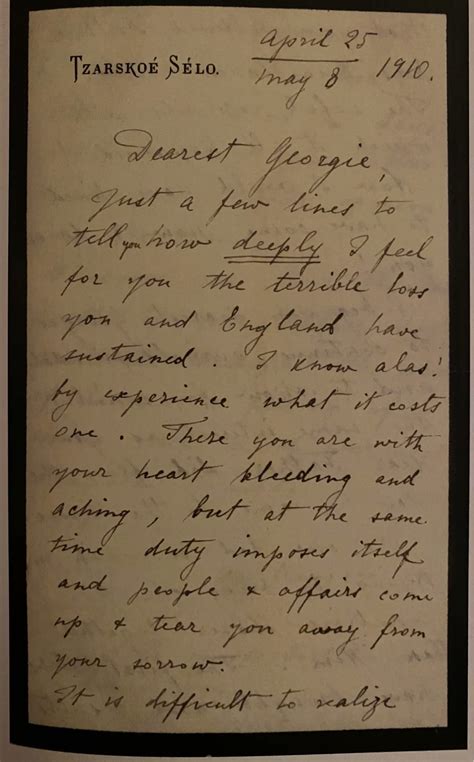 April 25
May 8 1910.
TZARSKOÉ SÉLO.
Dearest Georgie,
Just a few lines to
tell you how deeply I feel
for you the terrible loss
you and England have
sustained. I know alas!
by experience what it costs
one. There you are with
your heart bleeding and
aching, but at the same
time duty imposes itself
and people & affairs come
up & tear you away from
your sorrow.
It is difficult to realize